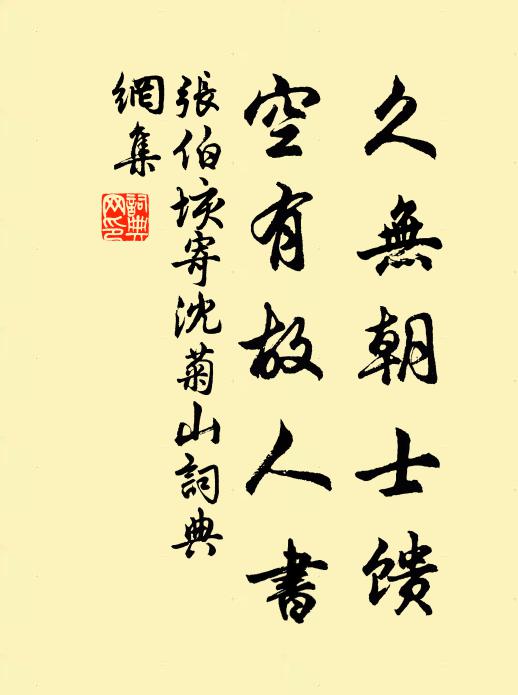 久無朝士馈
空有故人書
張伯垓寄沈菊山詞典
網集
詞典
网印